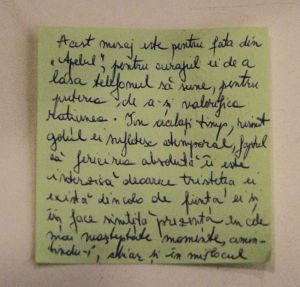 Acest mesaj este pentru fata din
„Apelul”, pentru curajul ei de a
lăsa telefonul să sune, pentru
puterea de a-și valorifica
rațiunea. În același timp,
golul ei sufletesc atemporal, faptul
că fericirea absolută îi este
interzisă deoarece tristețea ei
există dincolo de ființa ei și
își face simțită prezența în cele
mai neașteptate momente, amin-
tindu-i, chiar și în mijlocul